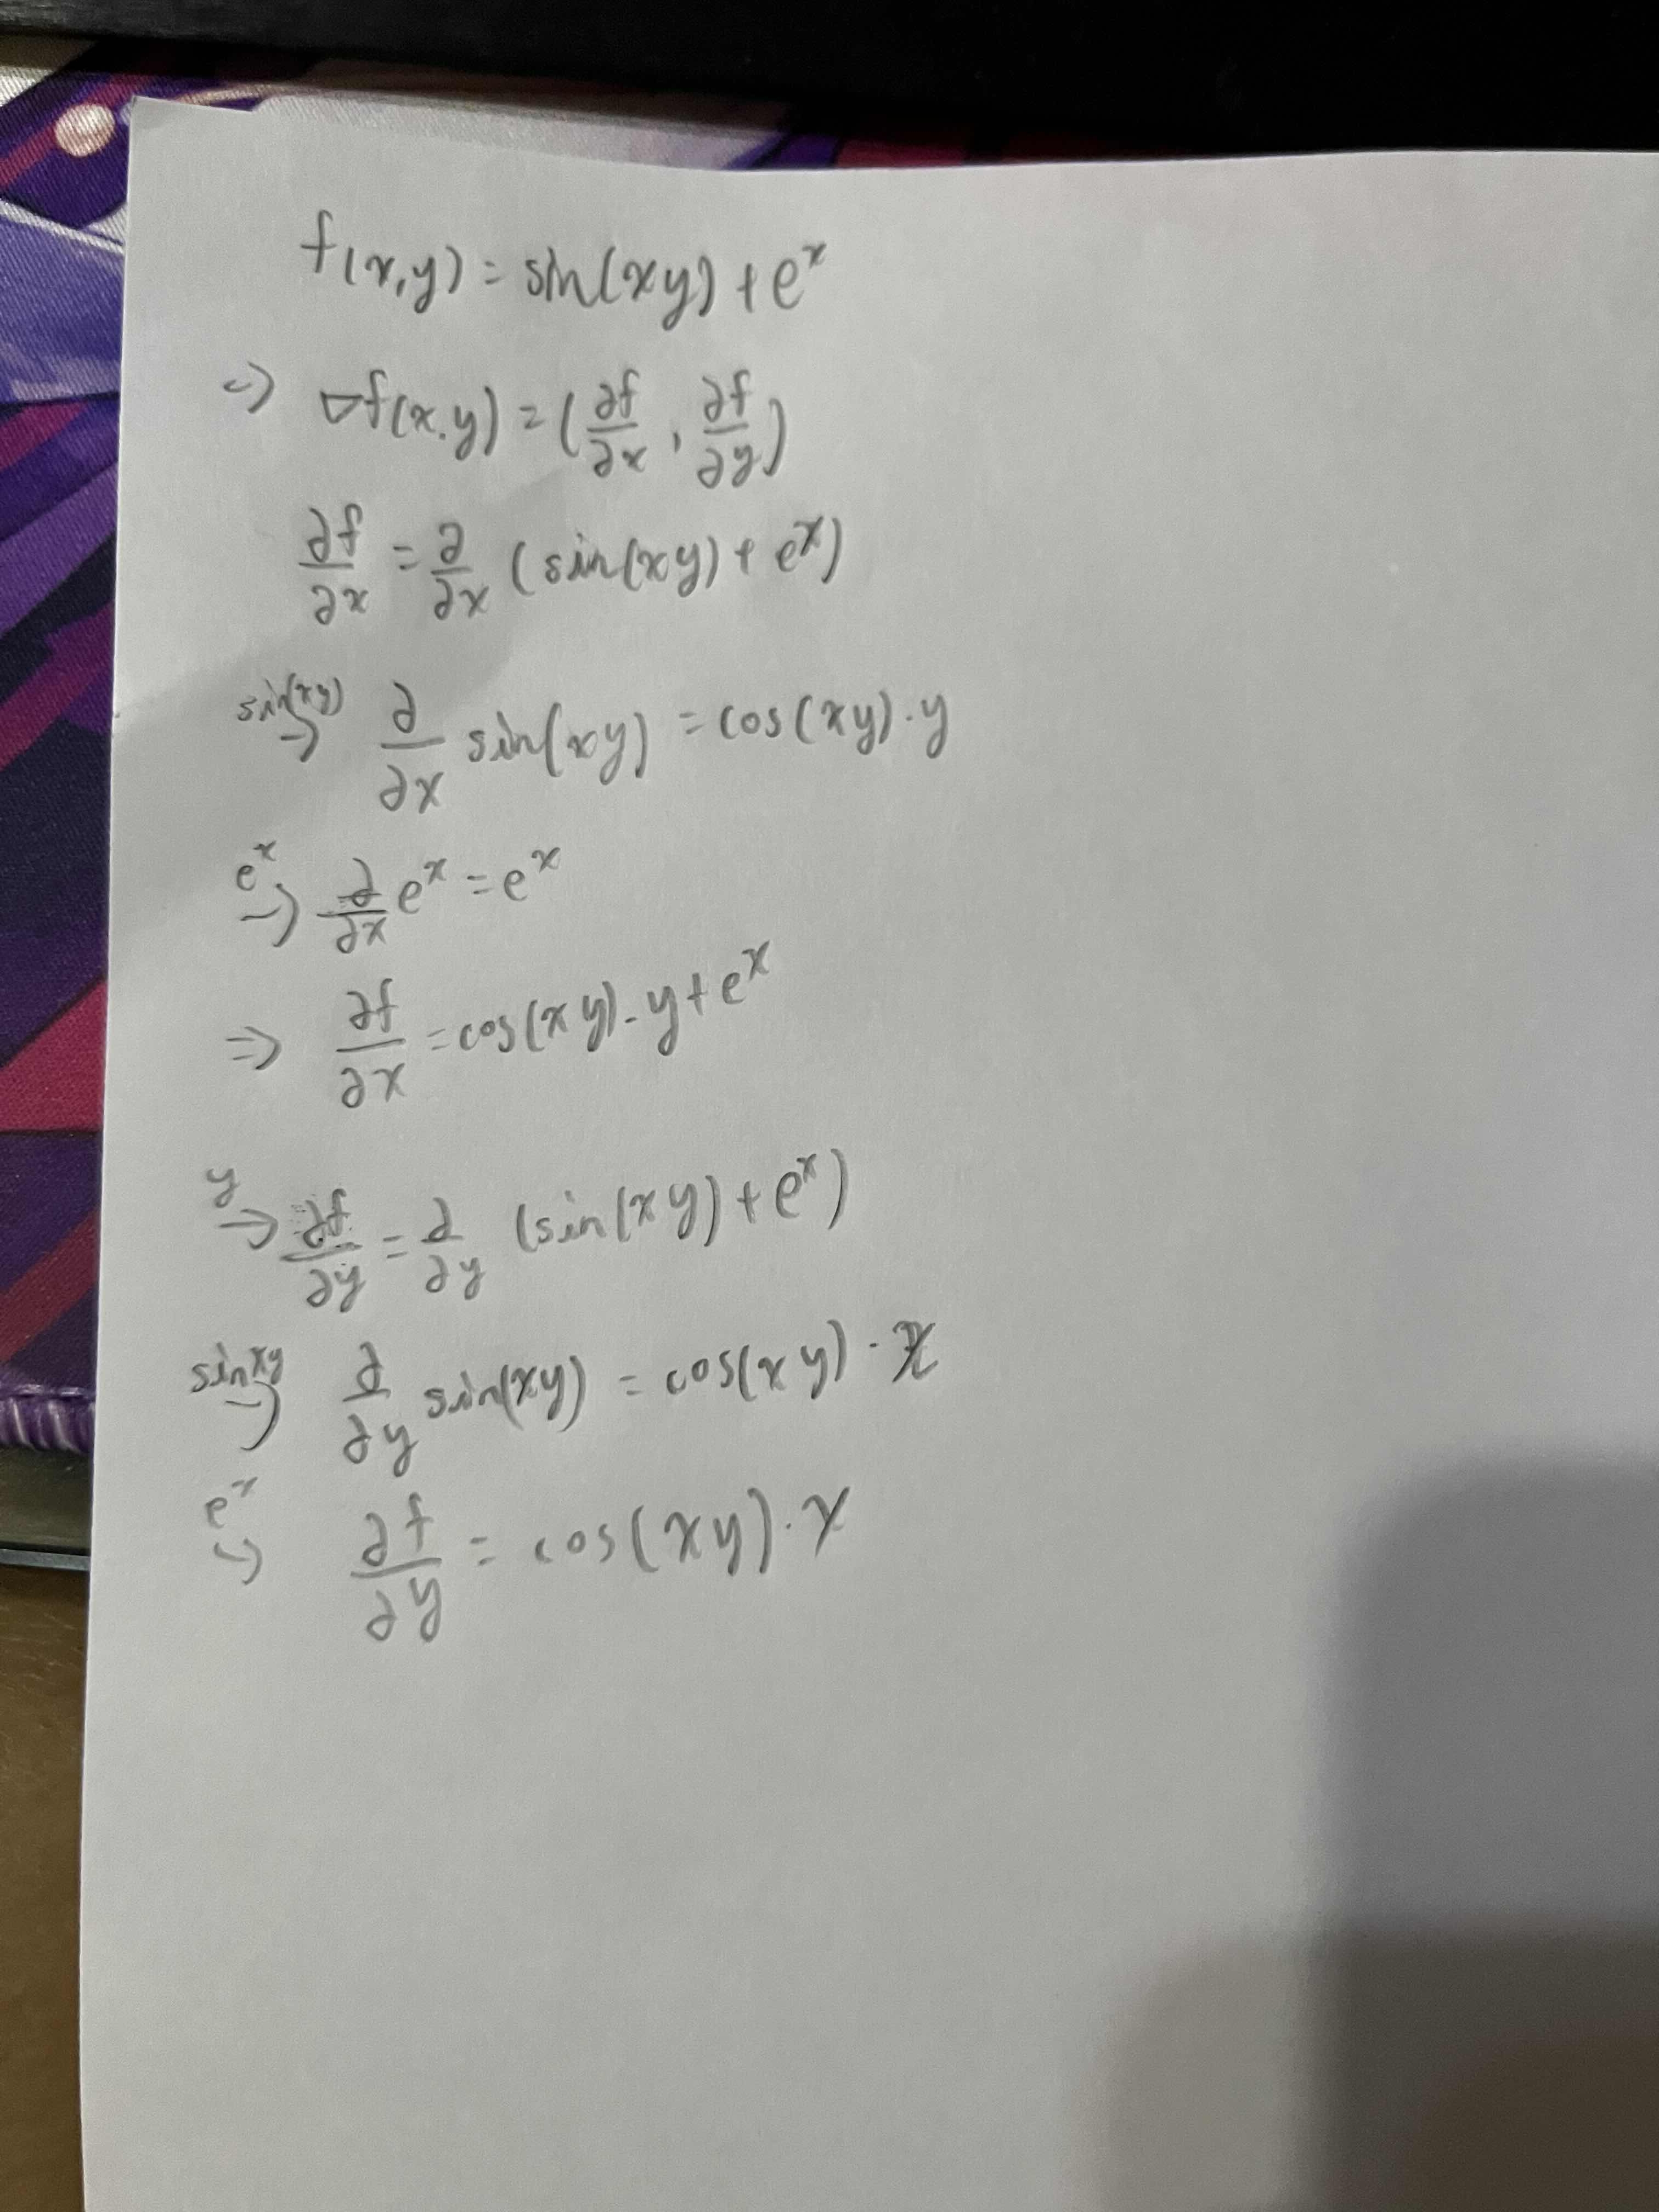 f(x,y) = sin(xy) + e^x
⇒ ∇f(x,y) = (∂f/∂x, ∂f/∂y)
∂f/∂x = ∂/∂x (sin(xy) + e^x)
sin(xy) → ∂/∂x sin(xy) = cos(xy)·y
e^x → ∂/∂x e^x = e^x
⇒ ∂f/∂x = cos(xy)·y + e^x
y → ∂f/∂y = ∂/∂y (sin(xy) + e^x)
sinxy → ∂/∂y sin(xy) = cos(xy)·x
e^x → ∂f/∂y = cos(xy)·x